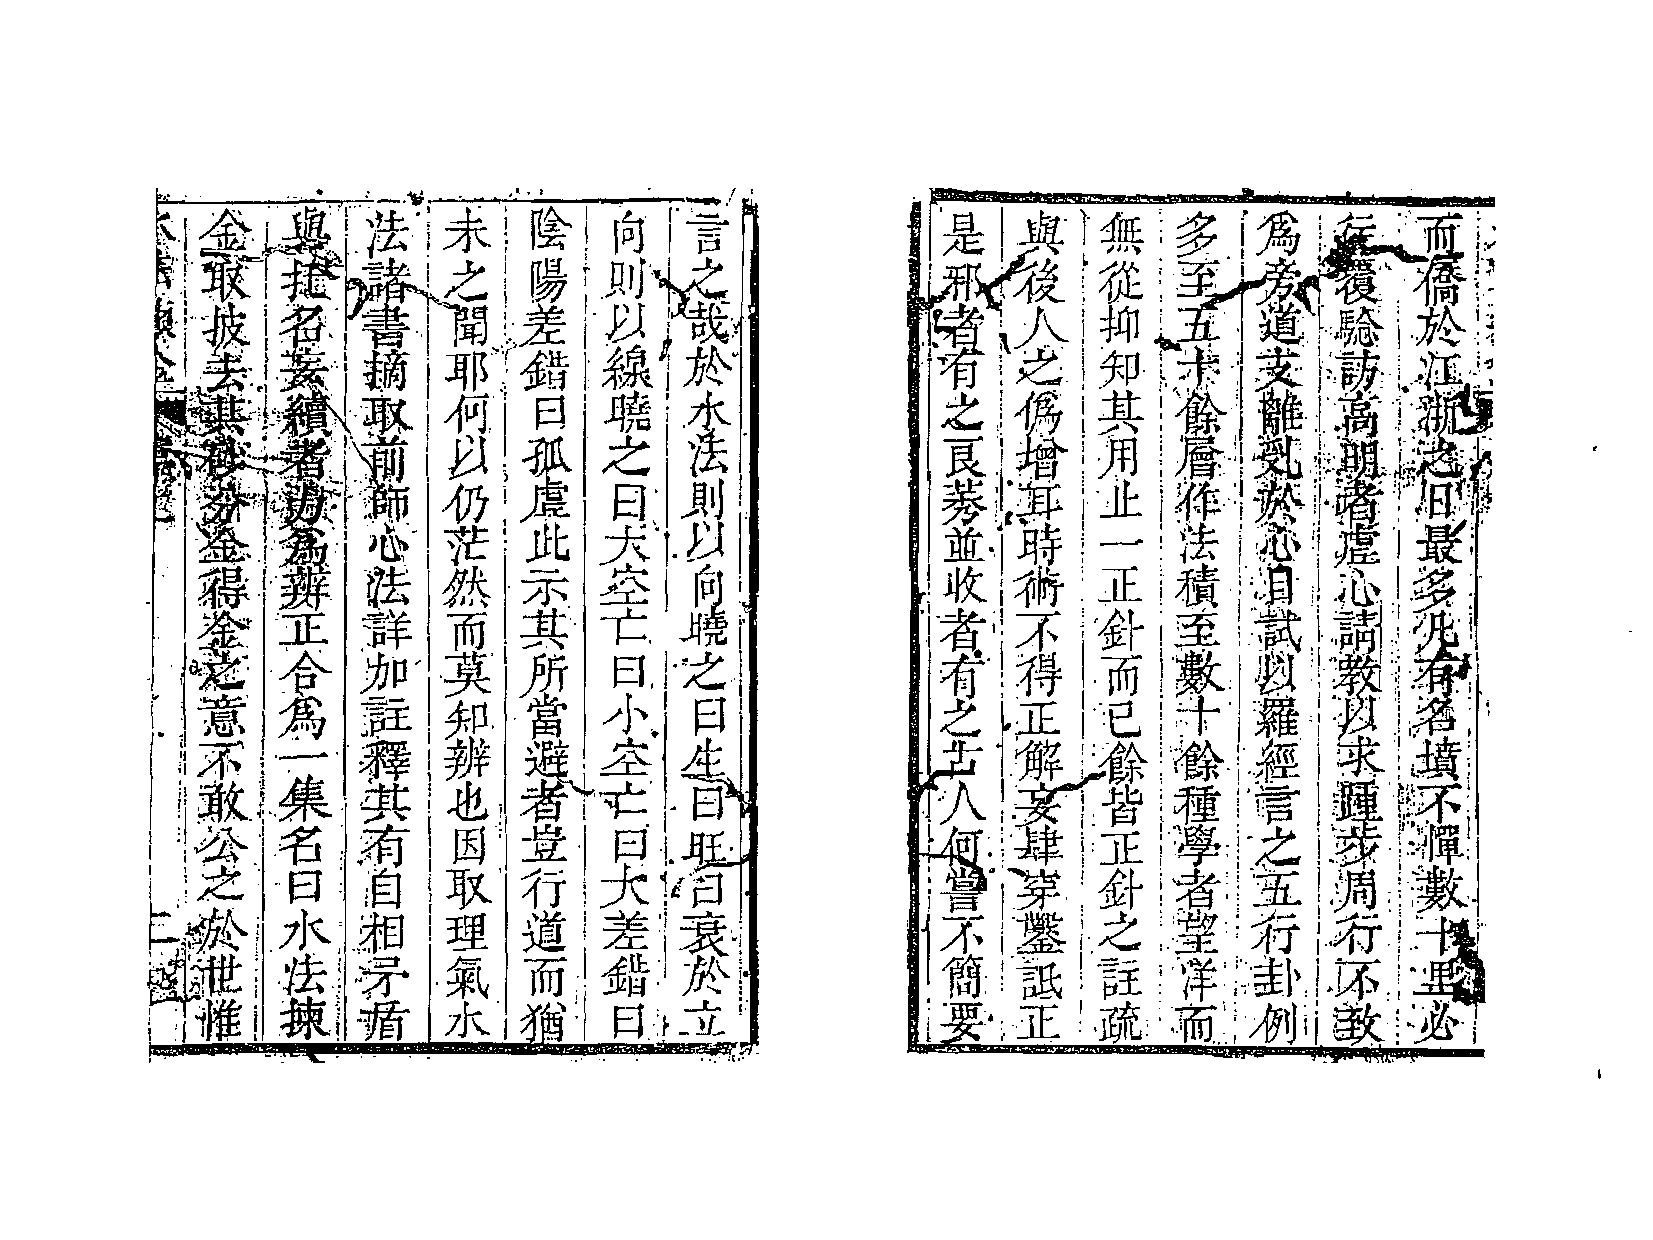 而僑於江浙之日最多凡有名墳不憚數十里必
行覆驗訪高明者虛心請教以求踵步周行不敢
爲旁道支離亂於心自試以羅經言之五行卦例
多至五十餘層作法積至數十餘種學者望洋而
無從抑知其用止一正針而已餘皆正針之註疏
與後人之僞增耳時術不得正解妄肆穿鑿詆正
是邪者有之良莠並收者有之古人何嘗不簡要
言之哉於水法則以向曉之曰生曰旺曰衰於立
向則以線曉之曰大空亡曰小空亡曰大差錯曰
陰陽差錯曰孤虛此示其所當避者豈行道而猶
未之聞耶何以仍茫然而莫知辨也因取理氣水
法諸書摘取前師心法詳加註釋其有自相矛盾
與托名妄續者另爲辨正合爲一集名曰水法揀
金取披去其砂分金得金之意不敢公之於世惟
二